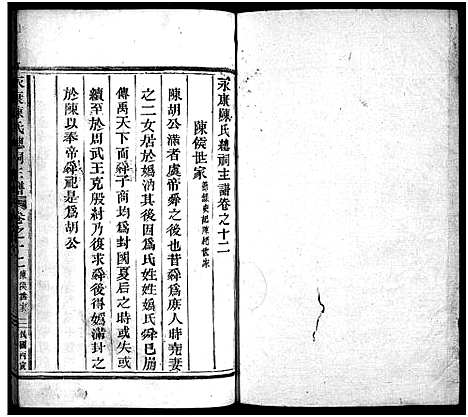 永康陳氏總祠主譜卷之十二
陳侯世家
陳胡公滿者虞帝舜之後也昔舜爲庶人時堯妻
之二女居於嬀汭其後因爲氏姓姓嬀氏舜已崩
傳禹天下而舜子商均爲封國夏后之時或失或
續至於周武王克殷紂乃復求舜後得嬀滿封之
於陳以奉帝舜祀是爲胡公
永康陳氏總祠主譜 卷之十二 陳侯世家 一 民國丙寅